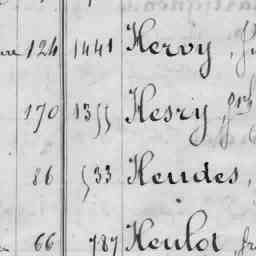 124 1441 Hervy
170 1355 Hesry
86 533 Heudes,
66 787 Heulot